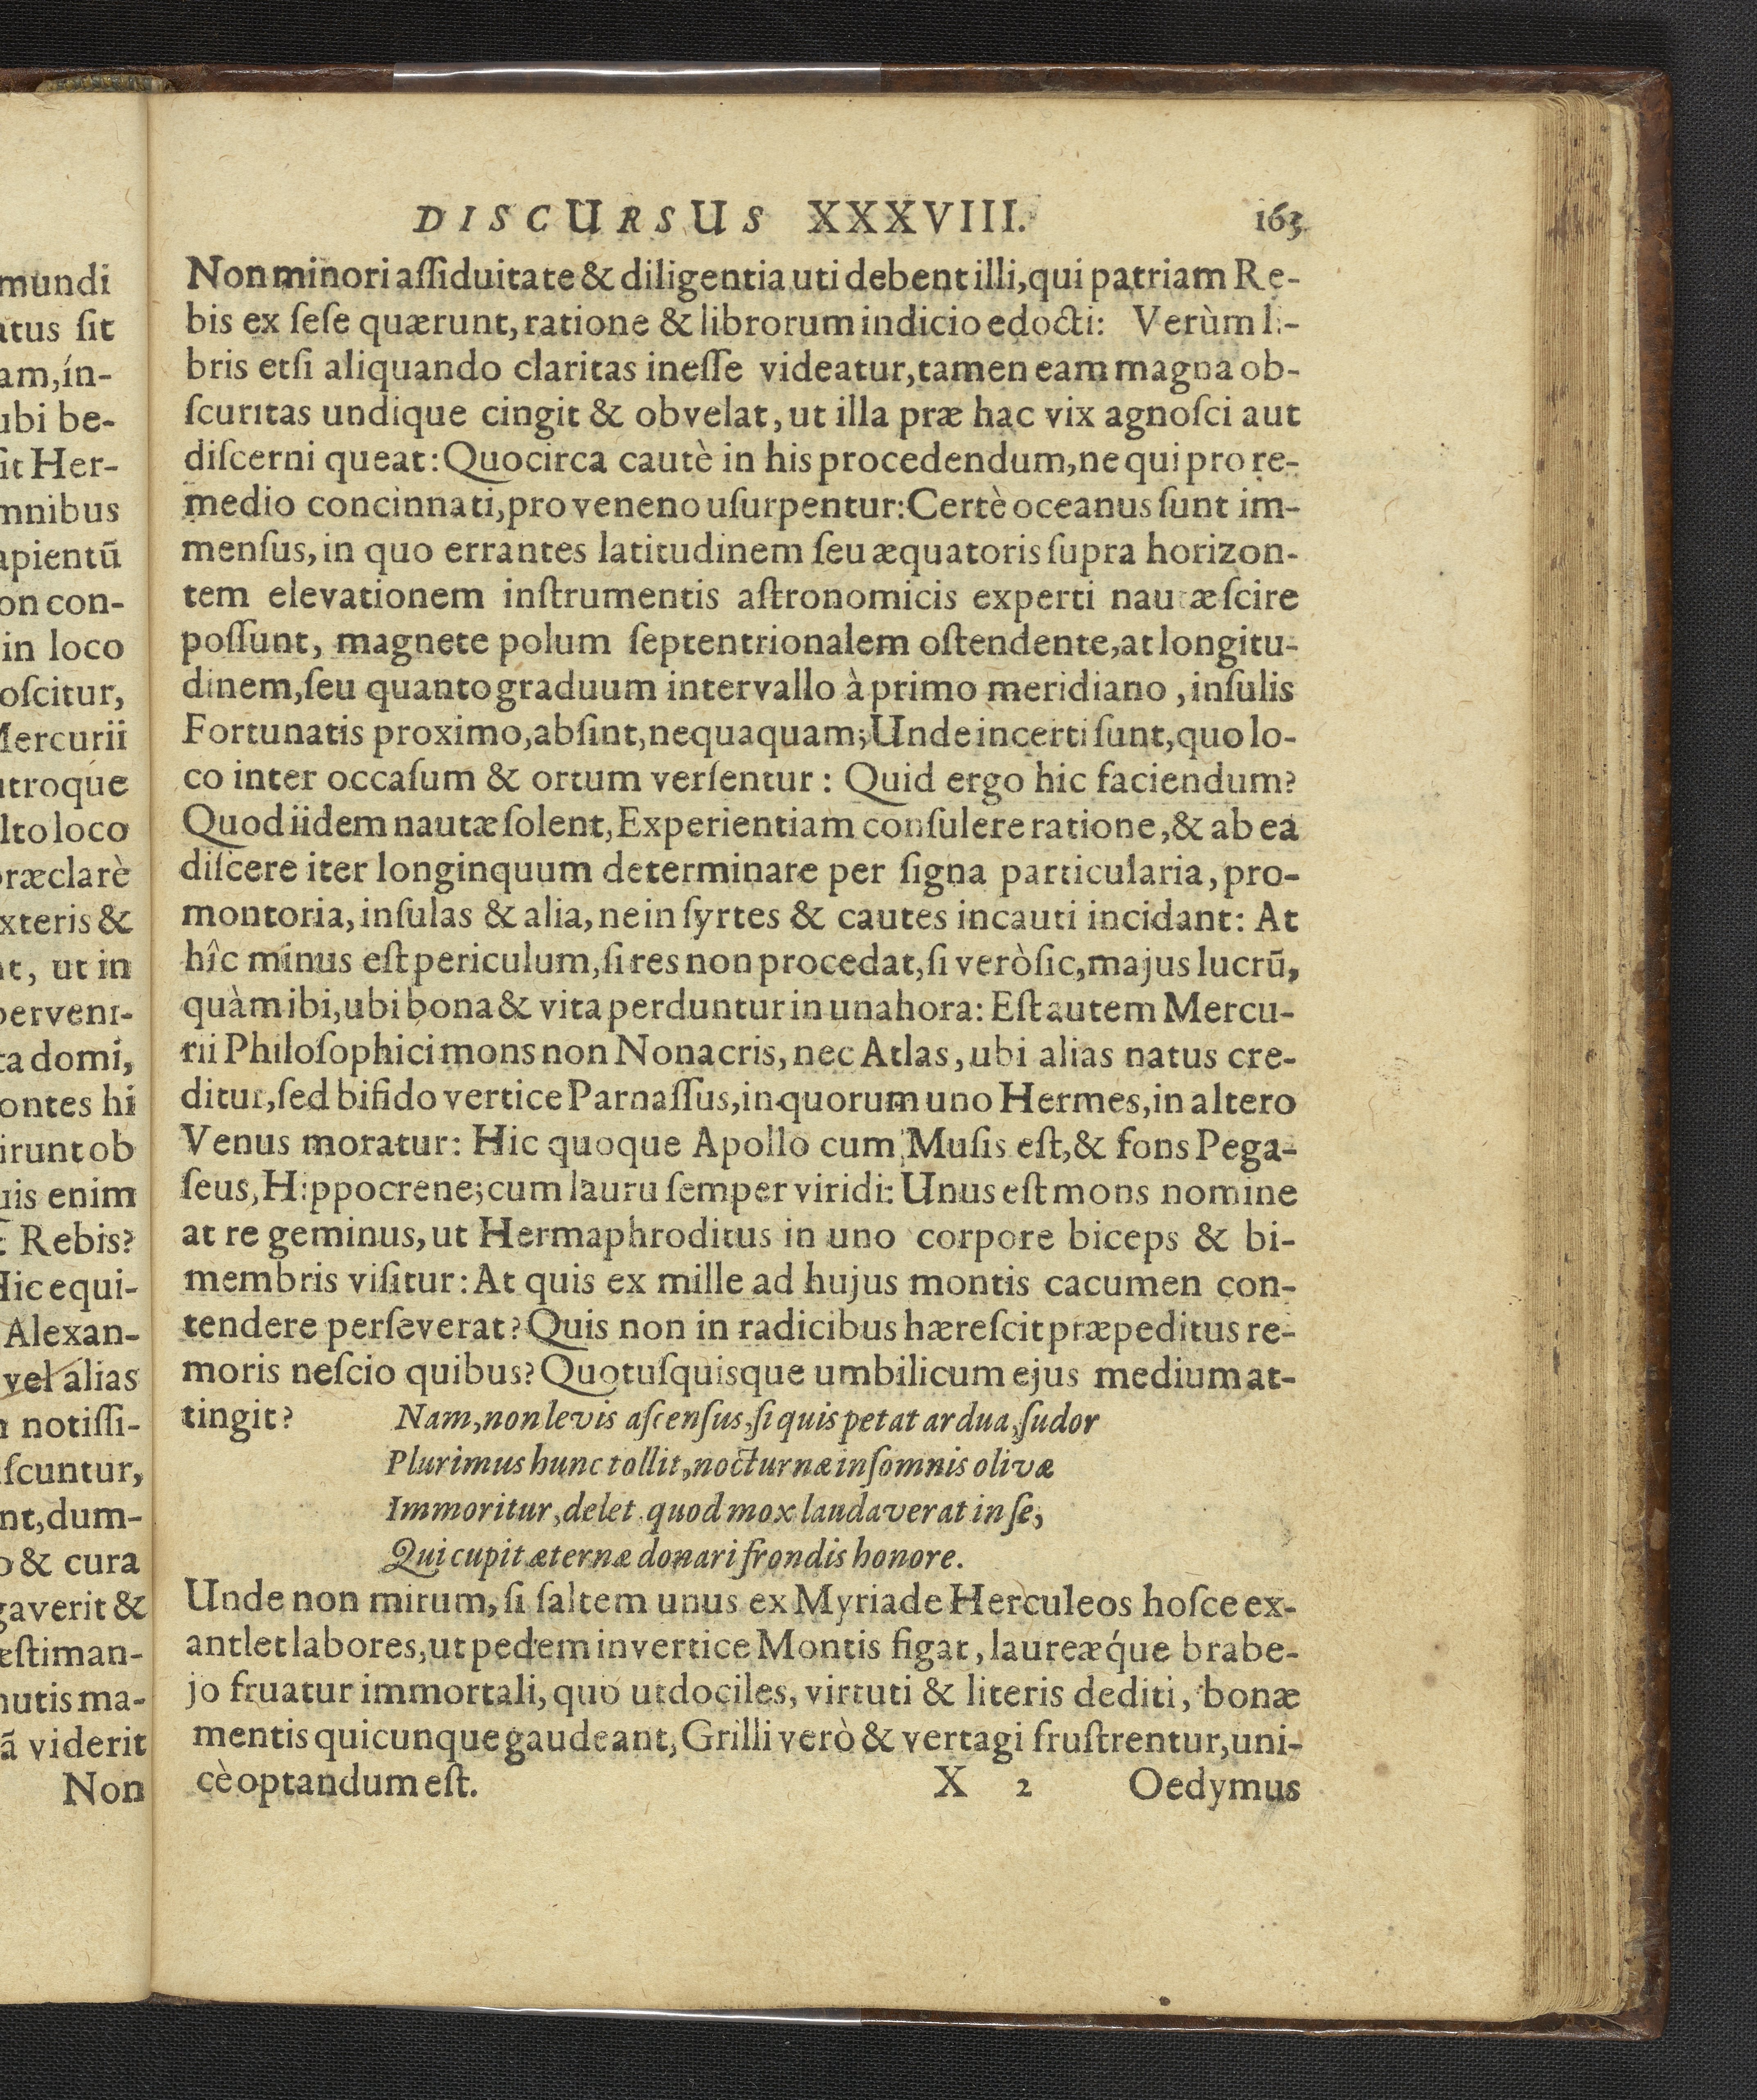 mundi
sit
am, ín-
ubi be-
ſit Her-
mnibus
apientũ
on con-
in loco
oſcitur,
Mercurii
utroque
lto loco
præclarè
exteris &
nt, ut in
perveni-
ta domi,
ontes hi
irunt ob
uis enim
Rebis?
Hic equi-
Alexan-
vel alias
notiſſi-
ſcuntur,
nt, dum-
o & cura
gaverit &
eſtiman-
nutis ma-
ã viderit
Non
DISCURSUS XXXVIII. 163
Non minori aſſiduitate & diligentia uti debent illi, qui patriam Re-
bis ex ſeſe quærunt, ratione & librorum indicio edocti: Verùm li-
bris etſi aliquando claritas ineſſe videatur, tamen eam magna ob-
ſcuritas undique cingit & obvelat, ut illa præ hac vix agnoſci aut
diſcerni queat: Quocirca cautè in his procedendum, ne qui pro re-
medio concinnati, pro veneno uſurpentur: Certè oceanus ſunt im-
menſus, in quo errantes latitudinem ſeu æquatoris ſupra horizon-
tem elevationem inſtrumentis aſtronomicis experti nautæ ſcire
poſſunt, magnete polum ſeptentrionalem oſtendente, at longitu-
dinem, ſeu quanto graduum intervallo à primo meridiano, inſulis
Fortunatis proximo, abſint, nequaquam; Unde incerti ſunt, quo lo-
co inter occaſum & ortum verſentur: Quid ergo hic faciendum?
Quod iidem nautæ ſolent, Experientiam conſulere ratione, & ab ea
diſcere iter longinquum determinare per ſigna particularia, pro-
montoria, inſulas & alia, ne in ſyrtes & cautes incauti incidant: At
hîc minus eſt periculum, ſi res non procedat, ſi verò ſic, majus lucrũ,
quàm ibi, ubi bona & vita perduntur in una hora: Eſt autem Mercu-
rii Philoſophici mons non Nonacris, nec Atlas, ubi alias natus cre-
ditur, ſed bifido vertice Parnaſſus, in quorum uno Hermes, in altero
Venus moratur: Hic quoque Apollo cum Muſis eſt, & fons Pega-
ſeus, Hippocrene; cum lauru ſemper viridi: Unus eſt mons nomine
at re geminus, ut Hermaphroditus in uno corpore biceps & bi-
membris viſitur: At quis ex mille ad hujus montis cacumen con-
tendere perſeverat? Quis non in radicibus hæreſcit præpeditus re-
moris neſcio quibus? Quotuſquisque umbilicum ejus medium at-
tingit? Nam, non levis aſcenſus, ſi quis petat ardua, ſudor
Plurimus hunc tollit, nocturnæ inſomnis olivæ
Immoritur, delet quod mox laudaverat in ſe,
Qui cupit æternæ donari frondis honore.
Unde non mirum, ſi ſaltem unus ex Myriade Herculeos hoſce ex-
antlet labores, ut pedem in vertice Montis figat, laureæq́ue brabe-
jo fruatur immortali, quo ut dociles, virtuti & literis dediti, bonæ
mentis quicunque gaudeant, Grilli verò & vertagi fruſtrentur, uni-
cè optandum eſt. X 2 Oedymus